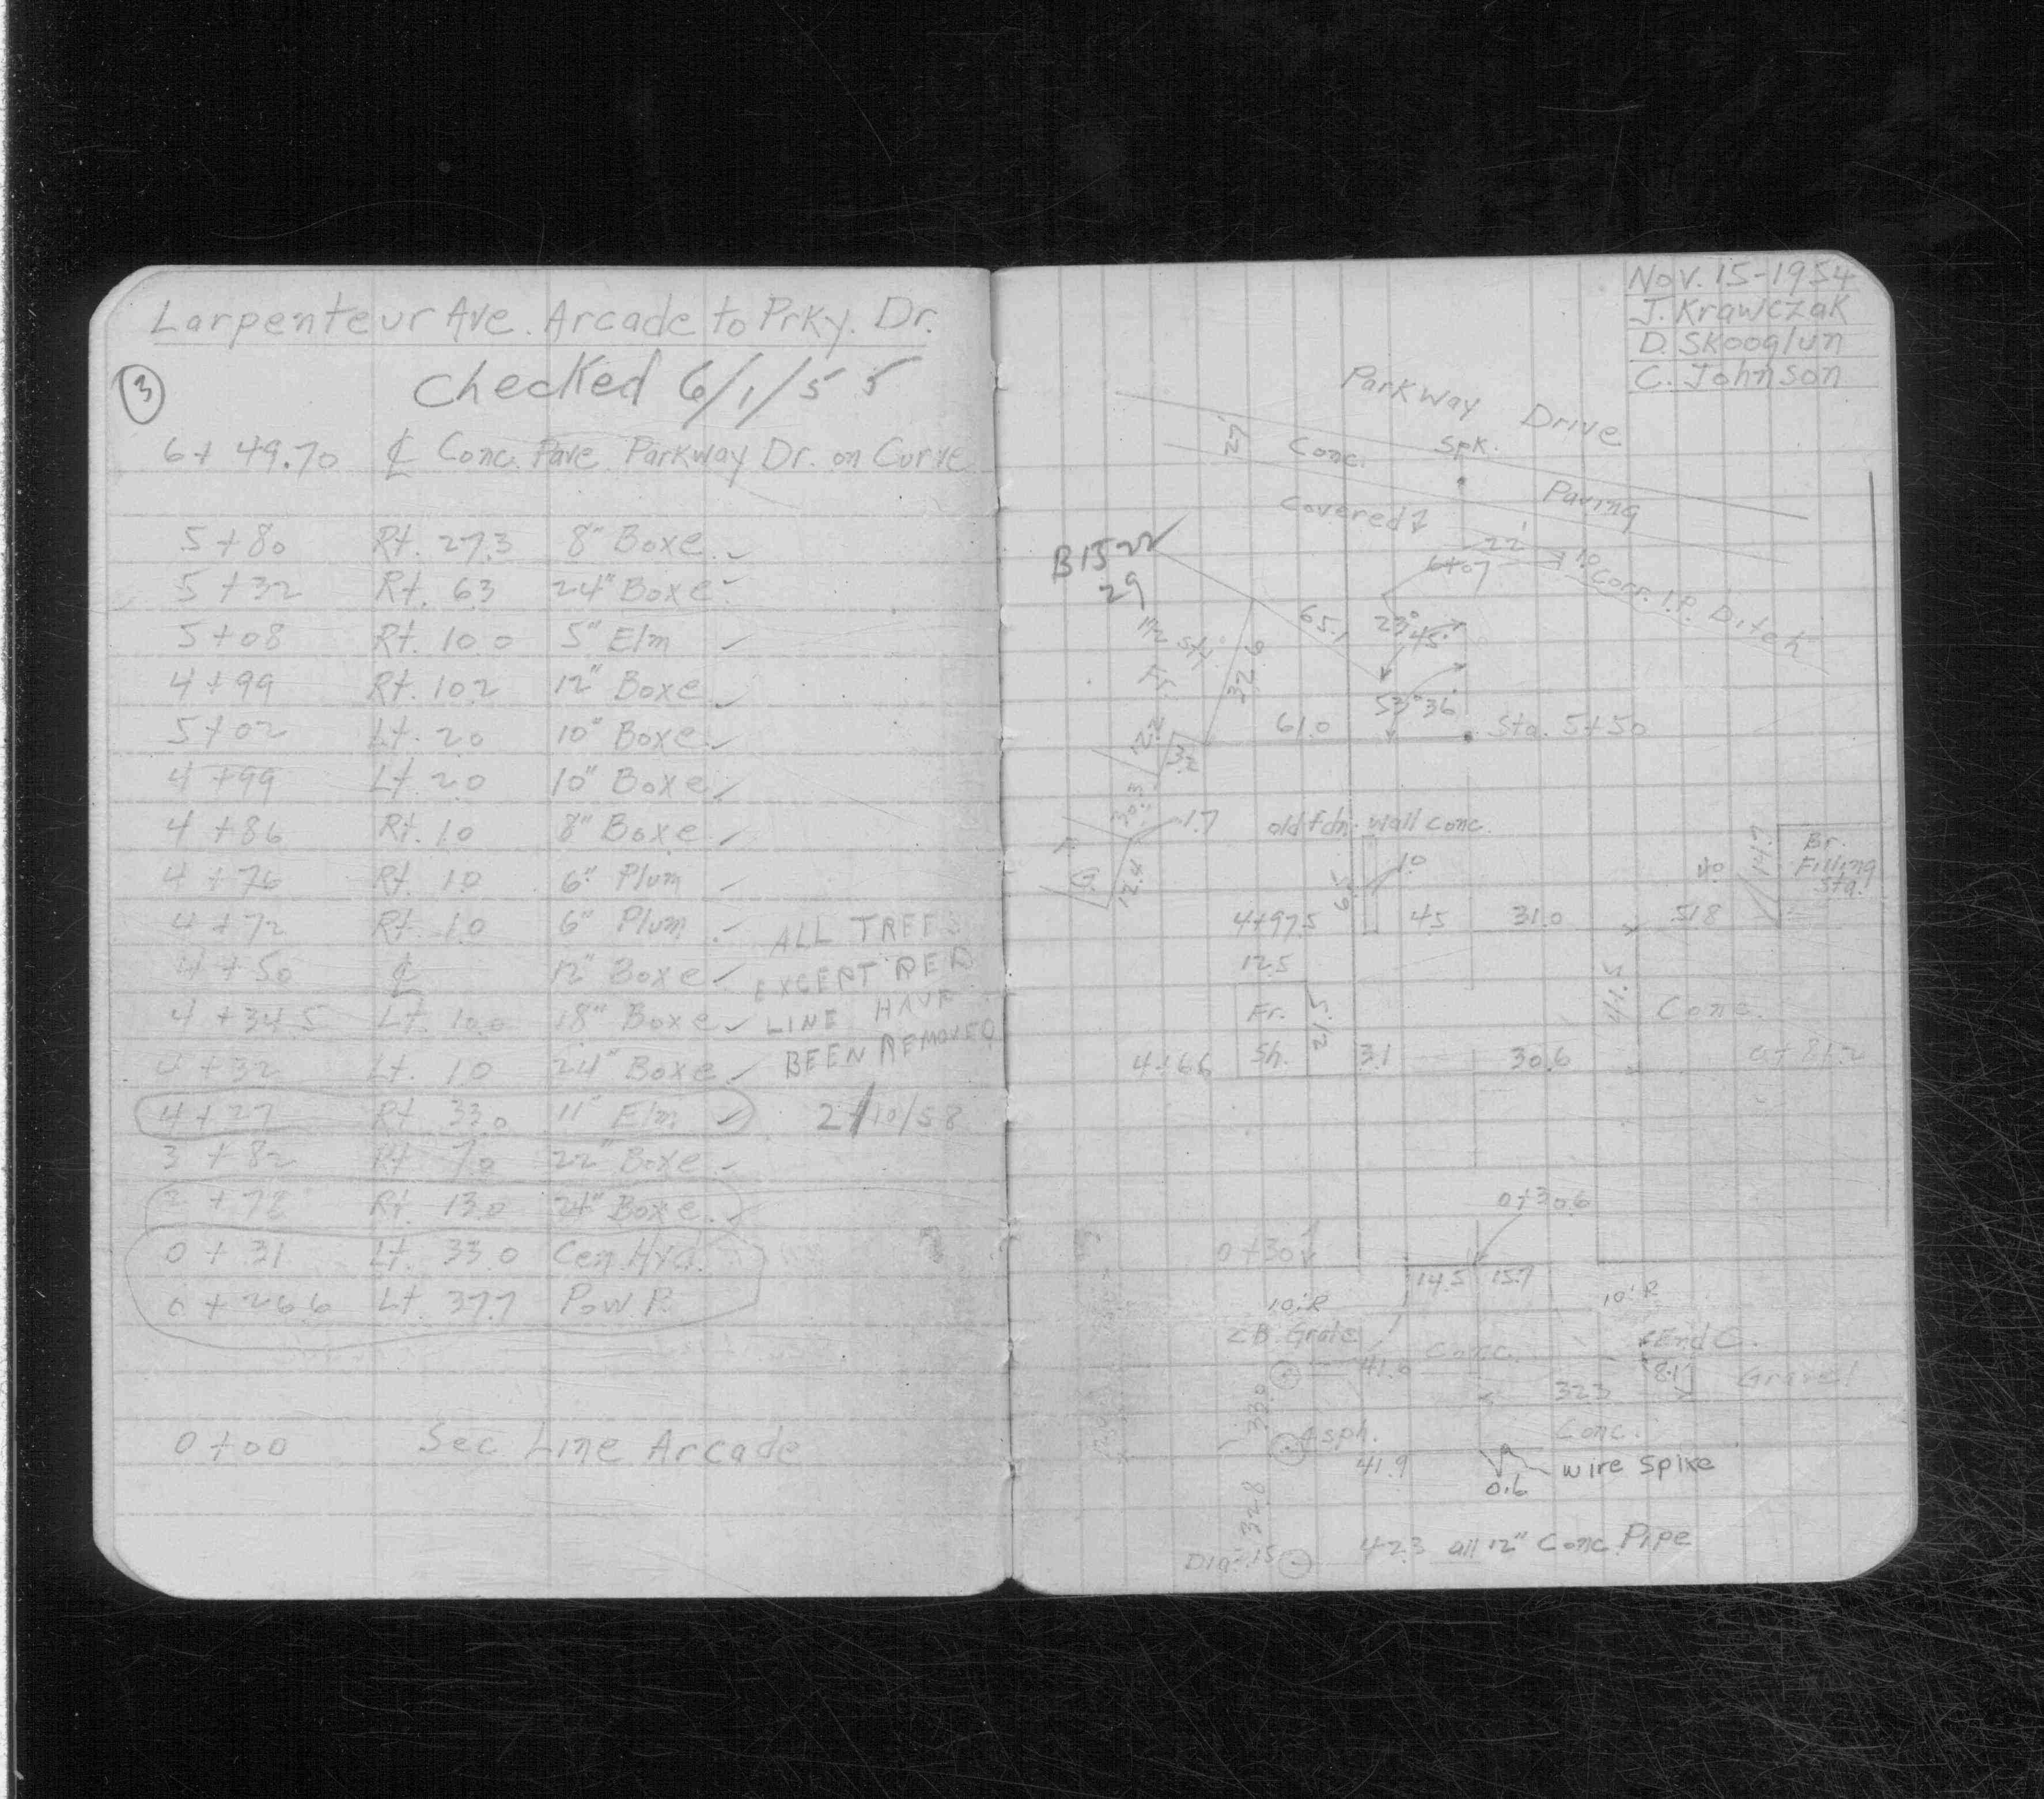 Larpenteur Ave. Arcade to Prky. Dr.
Checked 6/1/55
3
6+49.70 ℄ Conc. Pave Parkway Dr. on Curve
5+80 Rt. 27.3 8" Boxe. ✓
5+32 Rt. 63 24" Boxe. ✓
5+08 Rt. 10.0 5" Elm ✓
4+99 Rt. 10.2 12" Boxe ✓
5+02 Lt. 2.0 10" Boxe ✓
4+99 Lt. 2.0 10" Boxe ✓
4+86 Rt. 1.0 8" Boxe ✓
4+76 Rt. 1.0 6" Plum ✓
4+72 Rt. 1.0 6" Plum ✓
4+50 ℄ 12" Boxe ✓
4+34.5 Lt. 10.0 18" Boxe ✓
4+32 Lt. 1.0 24" Boxe ✓
ALL TREES
EXCEPT RED
LINE HAVE
BEEN REMOVED
4+27 Rt 33.0 11" Elm ✓ 2/10/58
3+82 Rt 7.0 22" Boxe ✓
Rt 13.0 24" Boxe. ✓
0+31 Lt. 33.0 Cen. Hyd.
0+26.6 Lt. 37.7 Pow. P.
0+00 Sec. Line Arcade
Nov. 15-1954
J. Krawczak
D. Skooglun
C. Johnson
Parkway Drive
27 Conc. Spk. Paving
Covered
22'
6+07
Corr. I.P. Ditch
B1522
29
65.1 23° 45'
1½ Sty.
Fr. 32.6
53° 36'
61.0 Sta. 5+50
12.2
3.2
30.3
1.7
old fdn. wall conc.
G. 12.4
6.5 1.0
14.7
Br.
Filling
Sta.
4+97.5 4.5 31.0 51.8
12.5
Fr. 21.5 41.5 Conc.
4+66 Sh. 3.1 30.6 0+81.2
0+30.6
0+30
14.5 15.7
10'R 10'R
C.B. Grate Conc. End C.
41.0 8.1 Gravel
32.3
33.0
Asph. Conc.
41.9 wire spike
0.6
32.8
42.3 all 12" Conc. Pipe